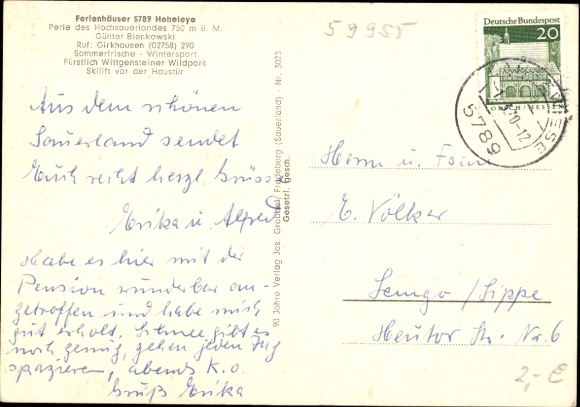 Ferienhäuser 5789 Hoheleye
Perle des Hochsauerlandes 750 m ü. M.
Günter Bienkowski
Ruf: Girkhausen (02758) 290
Sommerfrische - Wintersport
Fürstlich Wittgensteiner Wildpark
Skilift vor der Haustür
Aus dem schönen
Sauerland sendet
Euch recht herzl. Grüsse
Erika u. Alfred
Habe es hier mit der
Pension wunderbar an-
getroffen und habe mich
gut erholt, Schnee gibt es
noch genug, gehen jeden Tag
spazieren, abends K.o.
Gruß Erika
90 Jahre Verlag Jos. Grobbel, Fredeburg (Sauerland) - Nr. 3025
Gesetzl. gesch.
59955
Deutsche Bundespost
20
LORSCH/HESSEN
5789
70-12
Herrn u. Frau
E. Völker
Lemgo/Lippe
Heutor Str. Nr. 6
2,- €